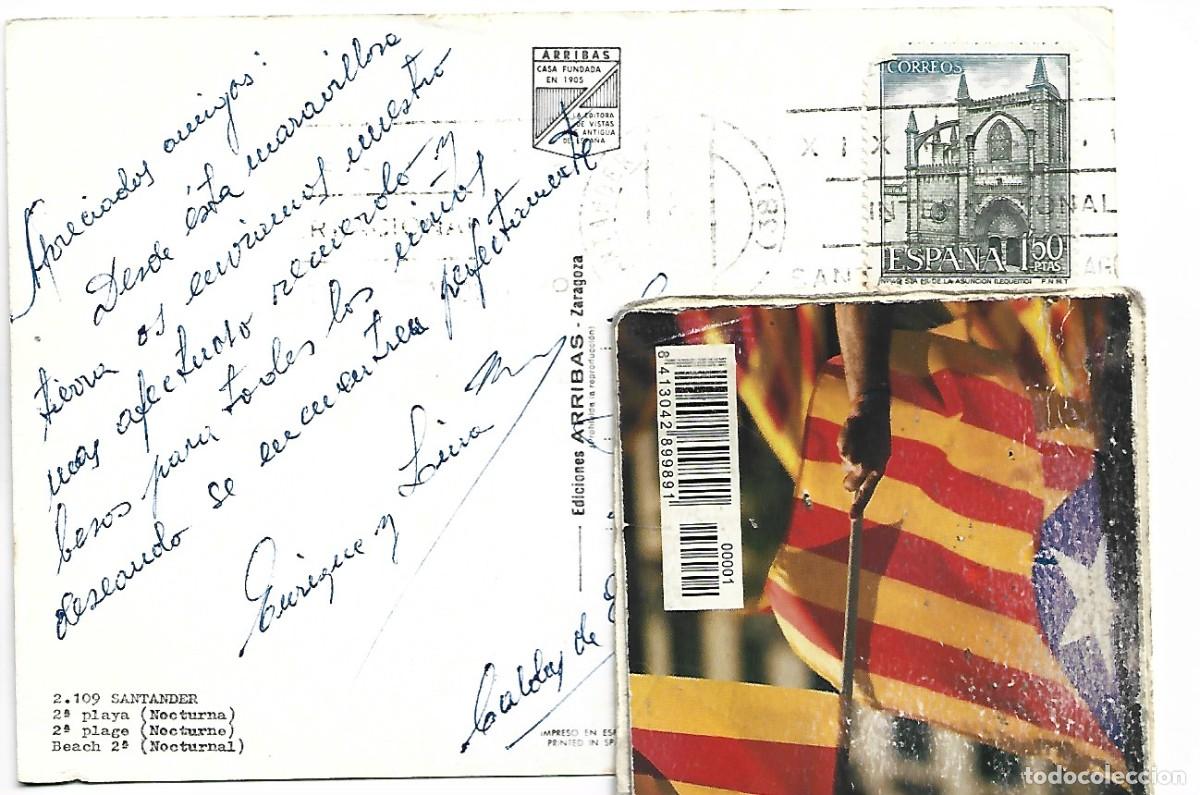 Apreciados amigos:
Desde ésta maravillosa
tierra os enviamos nuestro
mas afectuoso recuerdo y
besos para todos los niños
deseando se encuentren perfectamente
Enrique y Lina
Caldas de
2.109 SANTANDER
2ª playa (Nocturna)
2ª plage (Nocturne)
Beach 2ª (Nocturnal)
ARRIBAS
CASA FUNDADA
EN 1905
LA EDITORA
DE VISTAS
ANTIGUA
DE ESPAÑA
Ediciones ARRIBAS - Zaragoza
(prohibida la reproducción)
IMPRESO EN ESP
PRINTED IN SP
CORREOS
ESPAÑA 1,50
PTAS
DE LA ASUNCION (LEQUEITIO) F.N.M.T
XIX
INT
NAL
SAN
8413042899891
00001
todocoleccion